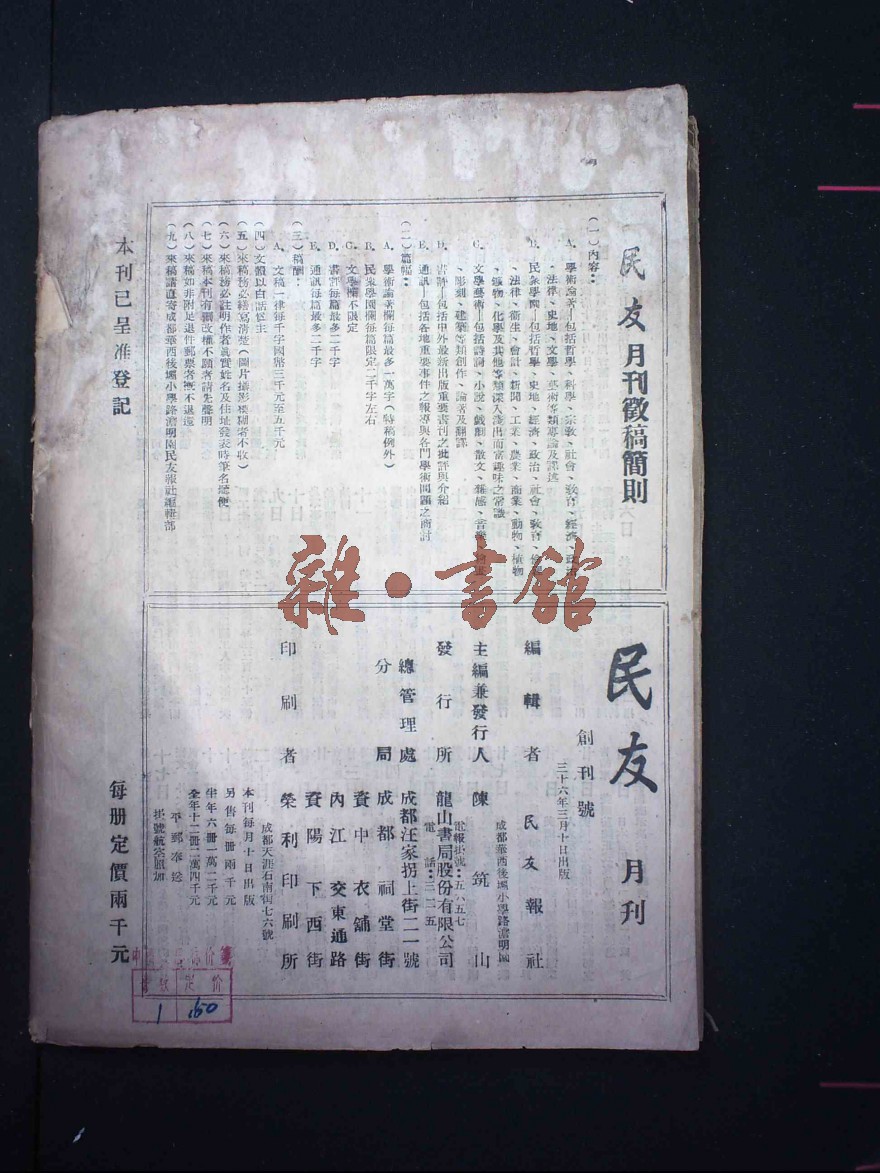 民友月刊徵稿簡則
(一)內容：
A.學術論著—包括哲學、科學、宗敎、社會、敎育、經濟、政治
、法律、史地、文學、藝術等類專論及譯述
B.民衆學園—包括哲學、史地、經濟、政治、社會、敎育、
、法律、衞生、會計、新聞、工業、農業、商業、動物、植物
、礦物、化學及其他等類深入淺出而富趣味之常識
C.文學藝術—包括詩詞、小說、戲劇、散文、雜感、音樂、
、彫刻、建築等類創作、論著及翻譯
D.書評—包括中外最新出版重要書刊之批評與介紹
E.通訊—包括各地重要事件之報導與各門學術問題之商討
(二)篇幅：
A.學術論著欄每篇最多一萬字(特稿例外)
B.民衆學園欄每篇限定二千字左右
C.文學欄不限定
D.書評每篇最多二千字
E.通訊每篇最多二千字
(三)稿酬：
A.文稿一律每千字國幣三千元至五千元
(四)文體以白話爲主
(五)來稿務必繕寫清楚(圖片攝影模糊者不收)
(六)來稿務必註明作者眞實姓名及住址發表時筆名聽便
(七)來稿本刊有刪改權不願者請先聲明
(八)來稿如非附足退件郵票者槪不退還
(九)來稿請直寄成都華西後壩小學路澹明園民友報社編輯部
本刊已呈准登記
民友月刊
創刊號
三十六年三月十日出版
編輯者 民友報社
成都華西後壩小學路澹明園
主編兼發行人 陳筑山
電報掛號：五六五七
發行所 龍山書局股份有限公司
電話：三二五
總管理處 成都汪家拐上街二一號
分局 成都祠堂街
資中衣舖街
內江交東通路
資陽下西街
印刷者 榮利印刷所
成都天涯石南街七六號
本刊每月十日出版
另售每冊兩千元
半年六冊一萬二千元
全年十二冊二萬四千元
平郵奉送
掛號航空照加
每册定價兩千元
雜·書館
定价
1